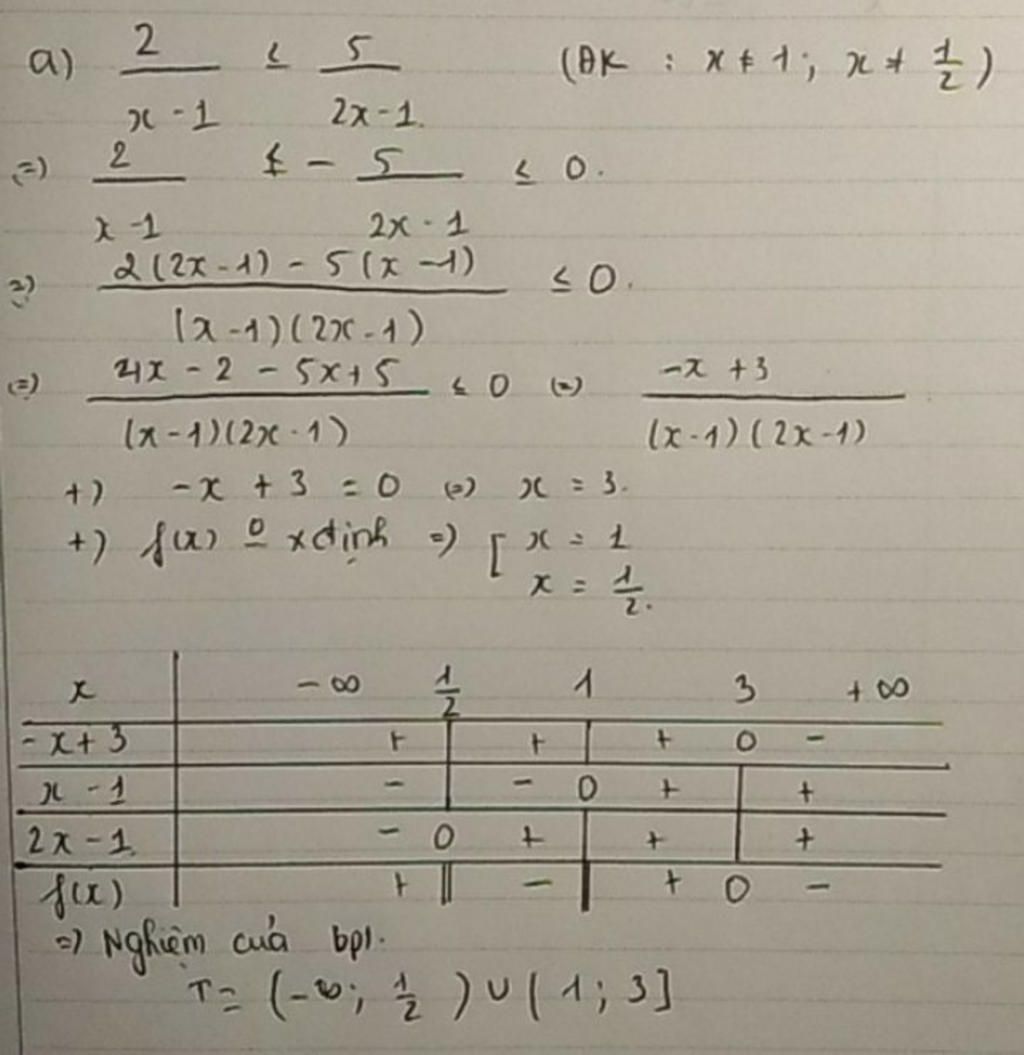 a) 2/(x-1) ≤ 5/(2x-1) (ĐK : x ≠ 1; x ≠ 1/2)
(=) 2/(x-1) - 5/(2x-1) ≤ 0.
(=) (2(2x-1) - 5(x-1))/((x-1)(2x-1)) ≤ 0.
(=) (4x - 2 - 5x + 5)/((x-1)(2x-1)) ≤ 0 (=) (-x + 3)/((x-1)(2x-1))
+) -x + 3 = 0 (=) x = 3.
+) f(x) 0 xđịnh =) [ x = 1
x = 1/2.
x -∞ 1/2 1 3 +∞
-x+3 + | + | + 0 -
x-1 - | - 0 + | +
2x-1 - 0 + | + | +
f(x) + || - || + 0 -
=) Nghiệm của bpt.
T = (-∞; 1/2) ∪ (1; 3]